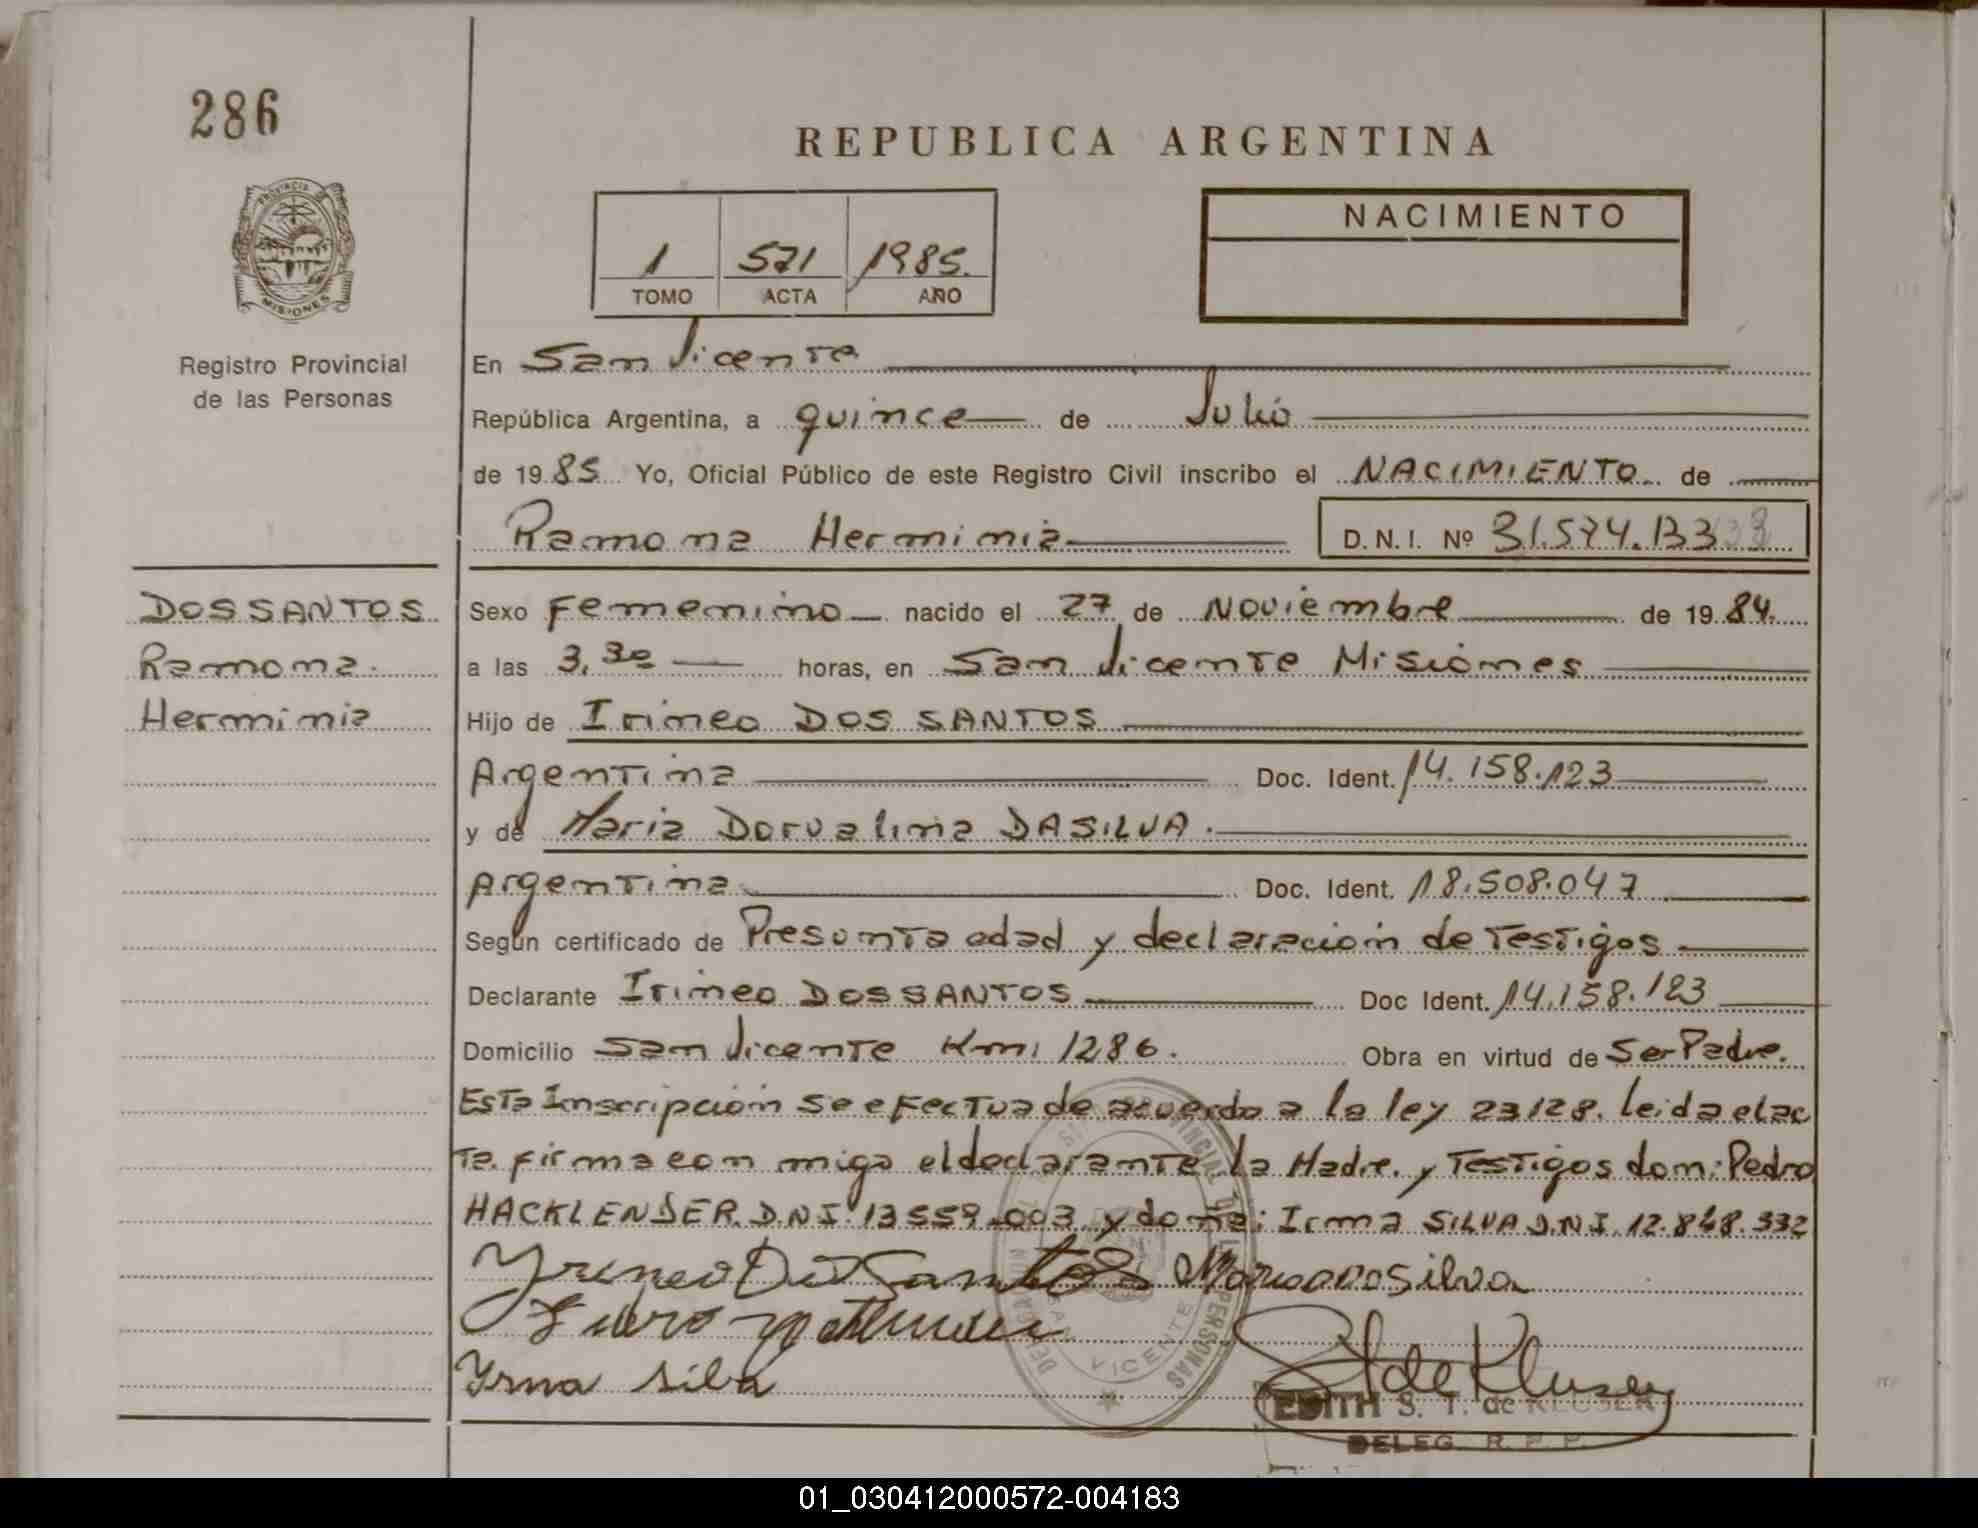 286
REPUBLICA ARGENTINA
PROVINCIA DE
MISIONES
Registro Provincial
de las Personas
1 571 1985.
TOMO ACTA AÑO
NACIMIENTO
En San Vicente
República Argentina, a quince de Julio
de 1985 Yo, Oficial Público de este Registro Civil inscribo el NACIMIENTO de
Ramona Herminia D.N.I. Nº 31.574.133
DOS SANTOS
Ramona
Herminia
Sexo Femenino nacido el 27 de Noviembre de 1984.
a las 3,30 horas, en San Vicente Misiones
Hijo de Irineo DOS SANTOS
Argentina Doc. Ident. 14.158.123
y de Maria Dorvalina DASILVA.
Argentina Doc. Ident. 18.508.047
Según certificado de Presunta edad y declaración de Testigos
Declarante Irineo DOS SANTOS Doc Ident. 14.158.123
Domicilio San Vicente Km, 1286. Obra en virtud de Ser Padre.
Esta Inscripción se efectua de acuerdo a la ley 23128. leida el ac
ta. firma con migo el declarante la Madre. y Testigos don: Pedro
HACKLENDER. D.N.I. 13559.003 y doña: Irma SILVA D.N.I. 12.848.332
Yrineo Dos Santos
Yrma silva
VICENTE
EDITH S. T. de KLUSER
DELEG. R. P. P.
01_030412000572-004183